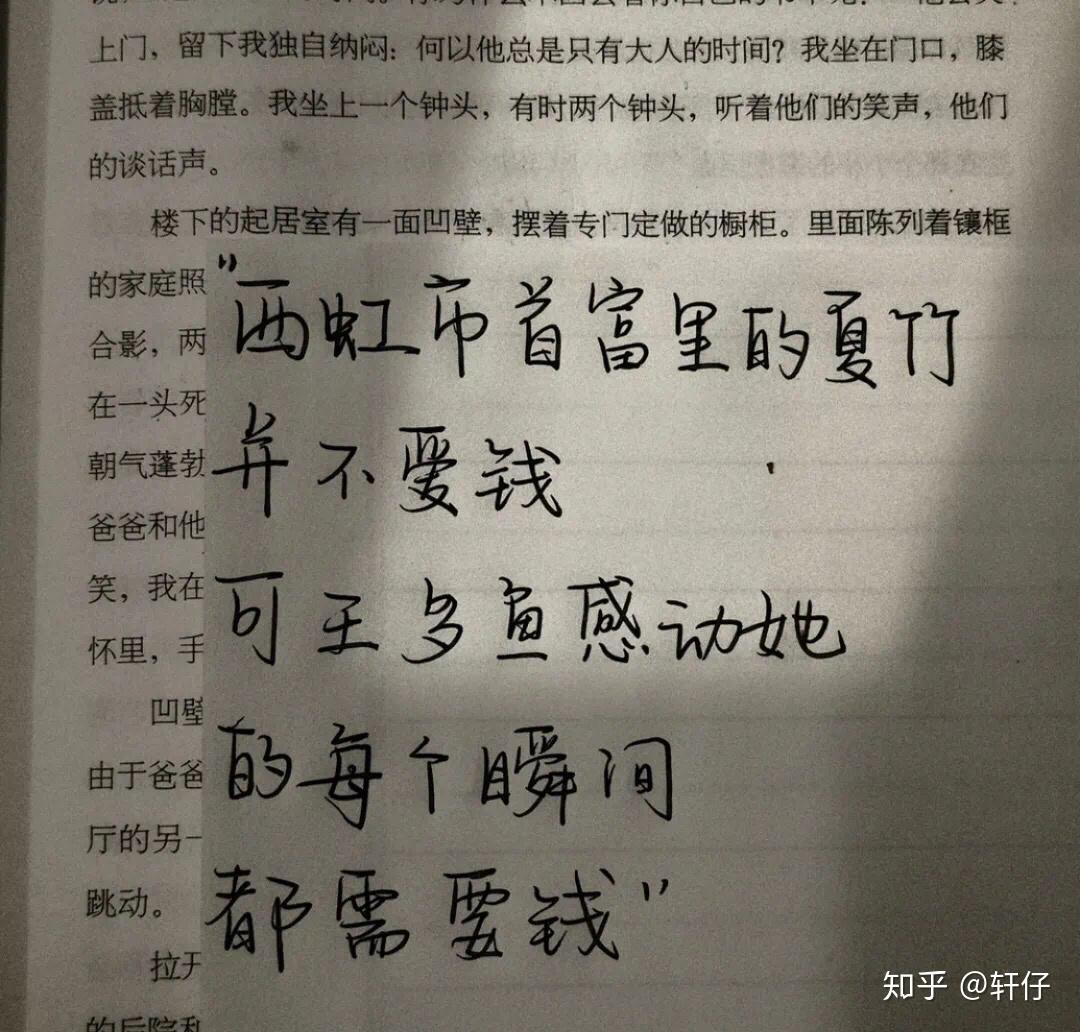 上门，留下我独自纳闷：何以他总是只有大人的时间？我坐在门口，膝
盖抵着胸膛。我坐上一个钟头，有时两个钟头，听着他们的笑声，他们
的谈话声。
楼下的起居室有一面凹壁，摆着专门定做的橱柜。里面陈列着镶框
的家庭照
合影，两
在一头死
朝气蓬勃
爸爸和他
笑，我在
怀里，手
凹壁
由于爸爸
厅的另一
跳动。
拉开
的后院和
"西虹市首富里的夏竹
并不爱钱
可王多鱼感动她
的每个瞬间
都需要钱"
知乎 @轩仔